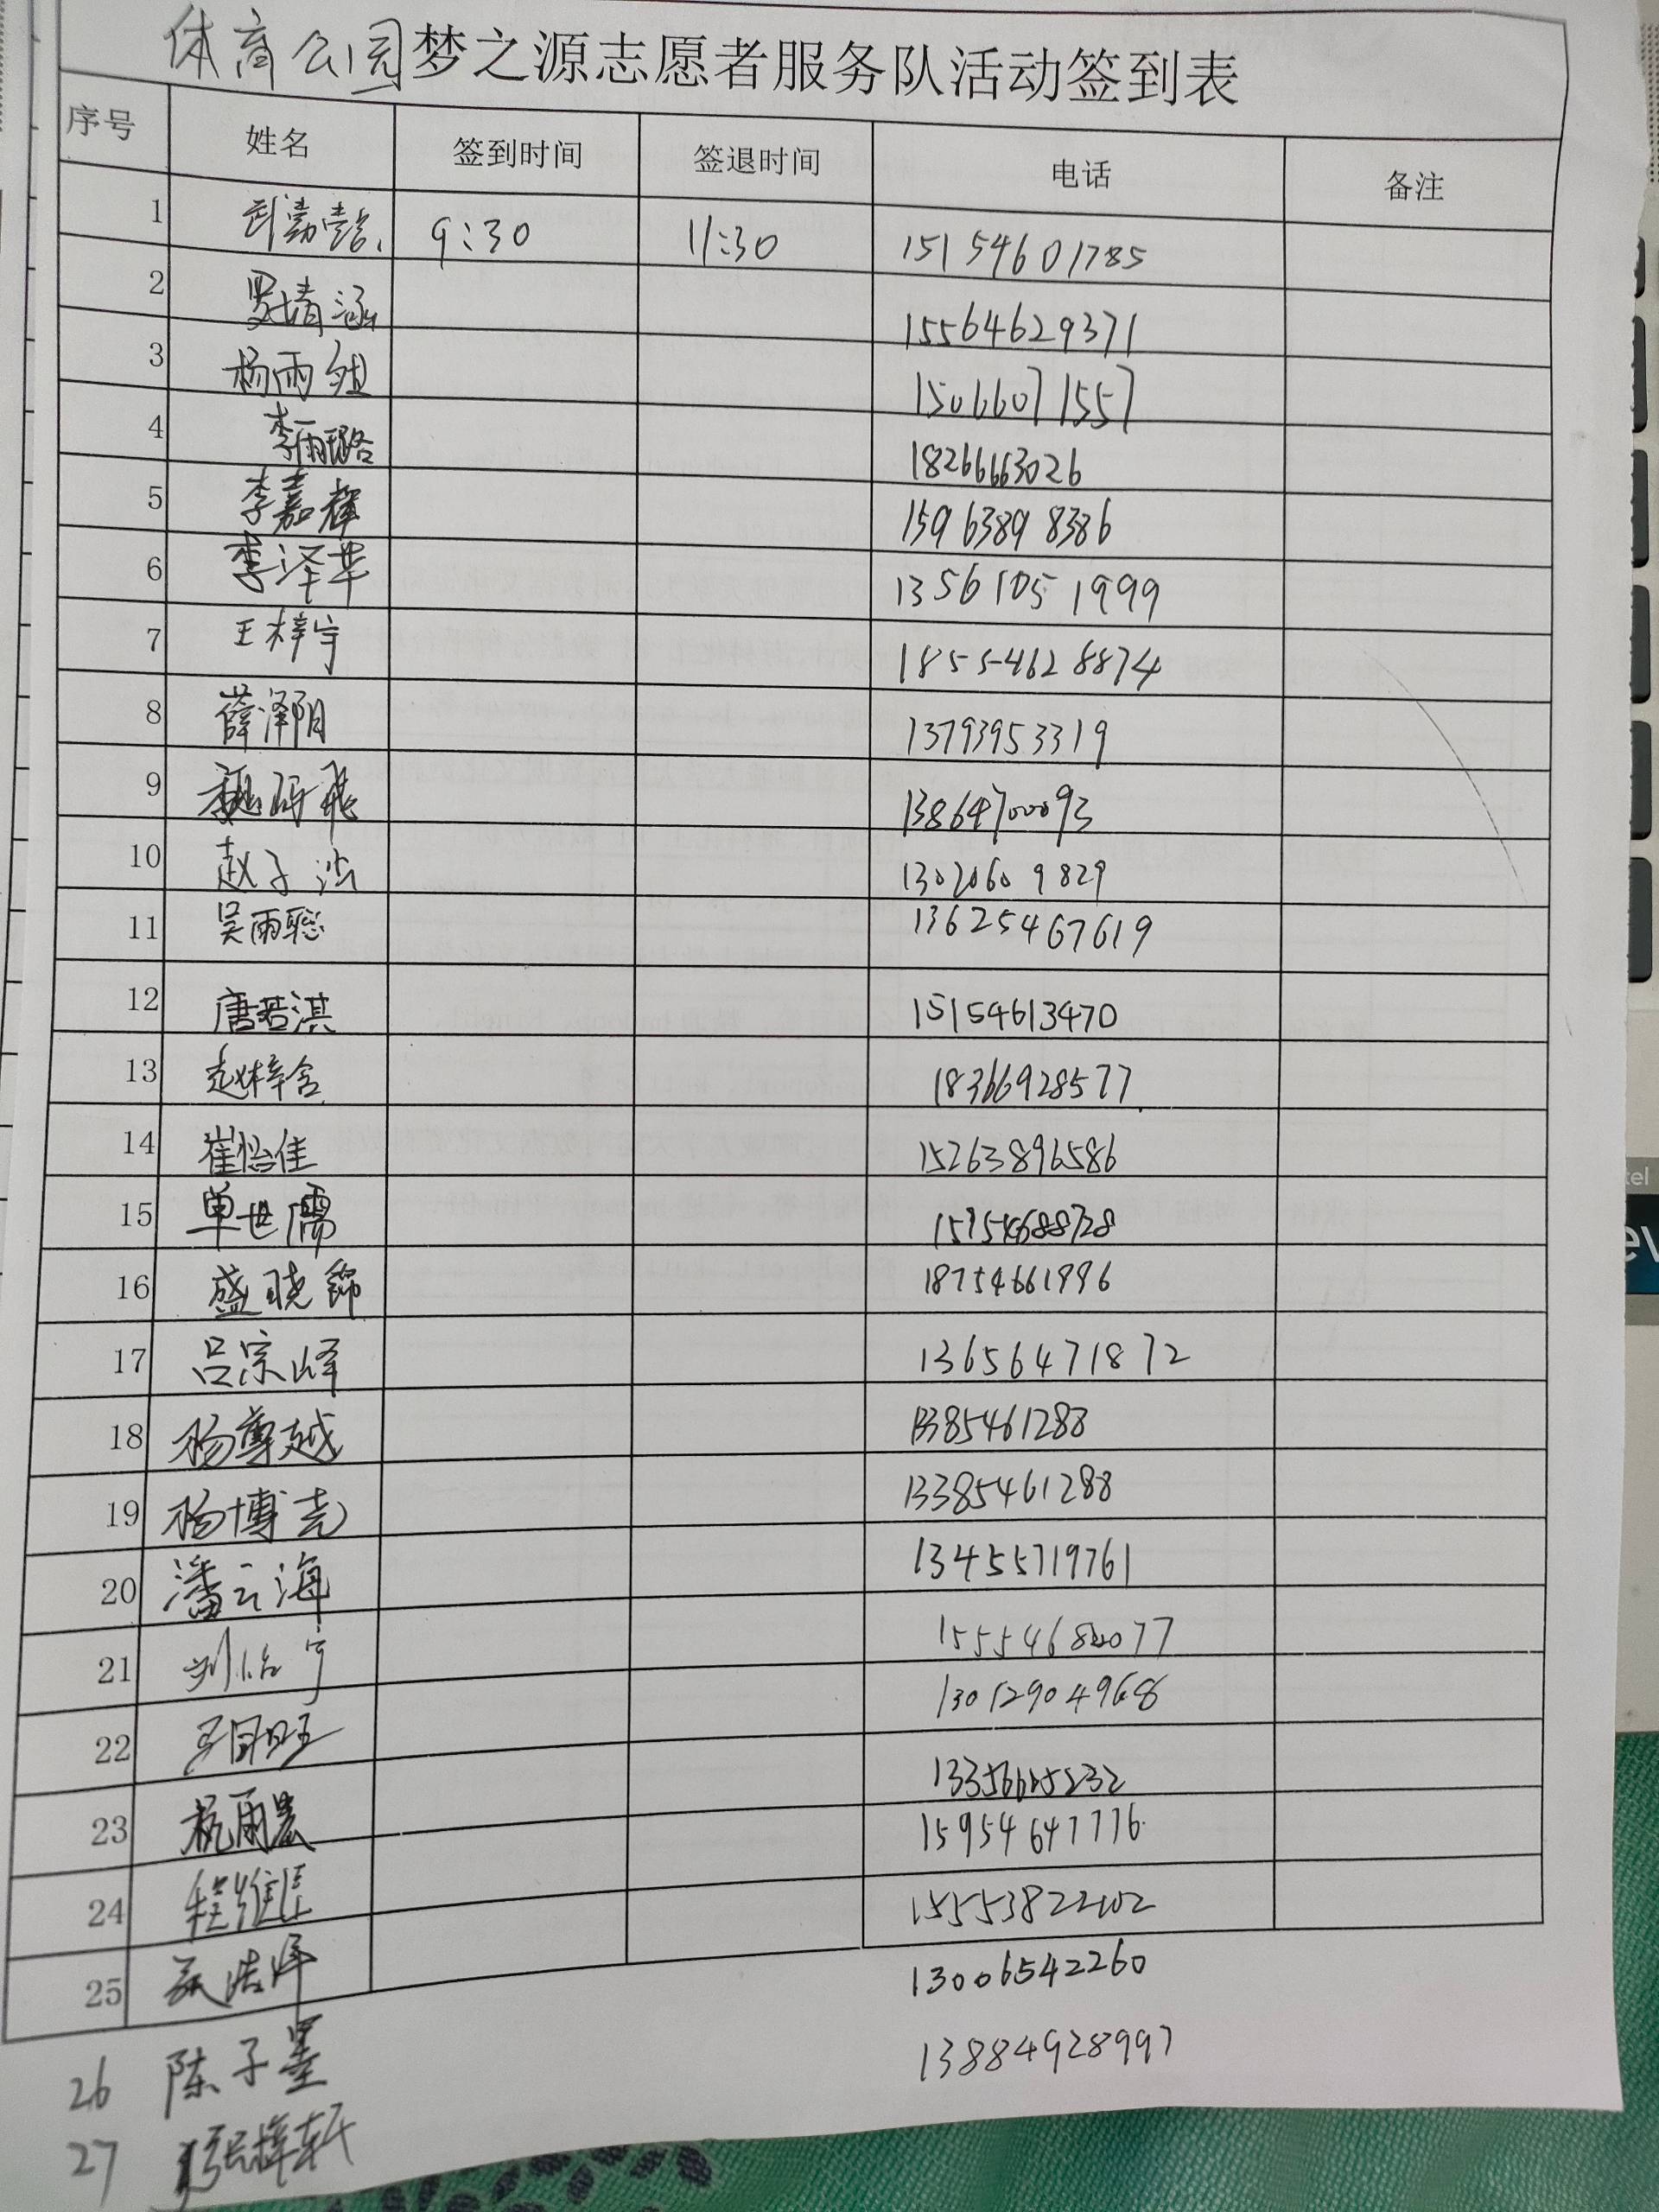 体育公园梦之源志愿者服务队活动签到表
序号 姓名 签到时间 签退时间 电话 备注
1 9:30 11:30 15154601785
2 罗婧涵 15564629371
3 杨雨 15066071557
4 李雨璐 18266663026
5 李嘉辉 15963898386
6 李泽华 13561051999
7 王梓宇 18554628874
8 薛泽阳 13793953319
9 魏 飛 13864700093
10 赵子 13020609829
11 吴雨聪 13625467619
12 唐若淇 15154613470
13 赵梓含 18366928577
14 崔怡佳 15263896586
15 单世儒
16 盛晓锦 18754661996
17 吕宗峰 13656471872
18 杨尊越 13385461288
19 杨博尧 13385461288
20 潘云海 13455719761
21 刘怡宁
22 王国旺 13012904968
23 杭雨晨
24 程维 15954647776
25 浩 15553822102
13006542260
26 陈子墨 13884928997
27 梓轩